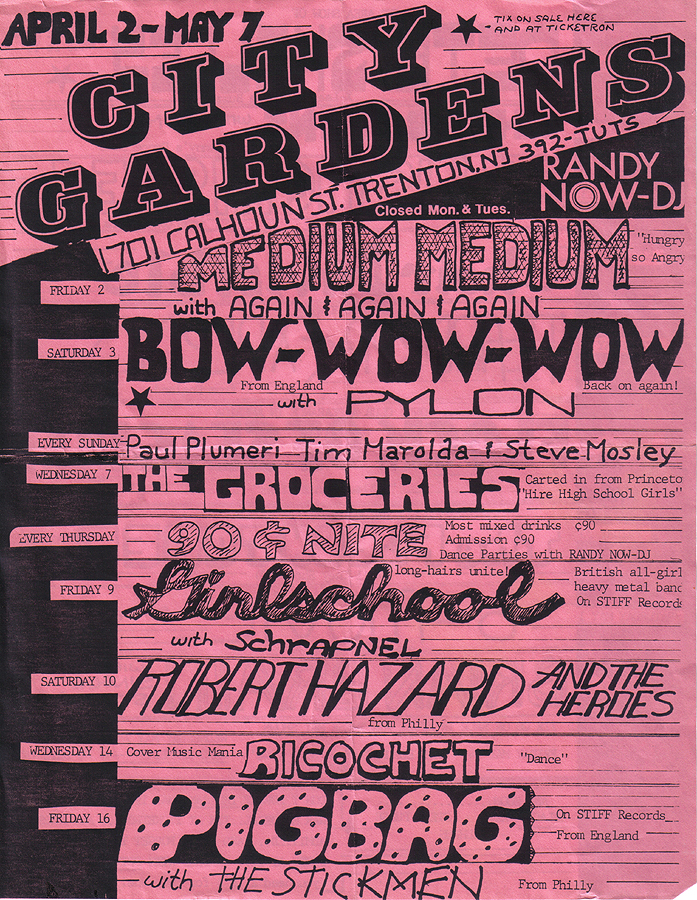 APRIL 2-MAY 7
TIX ON SALE HERE
AND AT TICKETRON
CITY
GARDENS
1701 CALHOUN ST. TRENTON, NJ 392-TUTS
RANDY
NOW-DJ
Closed Mon. & Tues.
FRIDAY 2
MEDIUM MEDIUM
"Hungry
so Angry
with AGAIN & AGAIN & AGAIN
SATURDAY 3
BOW-WOW-WOW
From England
Back on again!
with PYLON
EVERY SUNDAY
Paul Plumeri Tim Marolda & Steve Mosley
WEDNESDAY 7
THE GROCERIES
Carted in from Princeto
"Hire High School Girls"
EVERY THURSDAY
90 ¢ NITE
Most mixed drinks ¢90
Admission ¢90
Dance Parties with RANDY NOW-DJ
FRIDAY 9
Girlschool
long-hairs unite!
British all-girl
heavy metal band
On STIFF Records
with SCHRAPNEL
SATURDAY 10
ROBERT HAZARD AND THE
HEROES
from Philly
WEDNESDAY 14
Cover Music Mania
RICOCHET
"Dance"
FRIDAY 16
PIGBAG
On STIFF Records
From England
with THE STICKMEN
From Philly